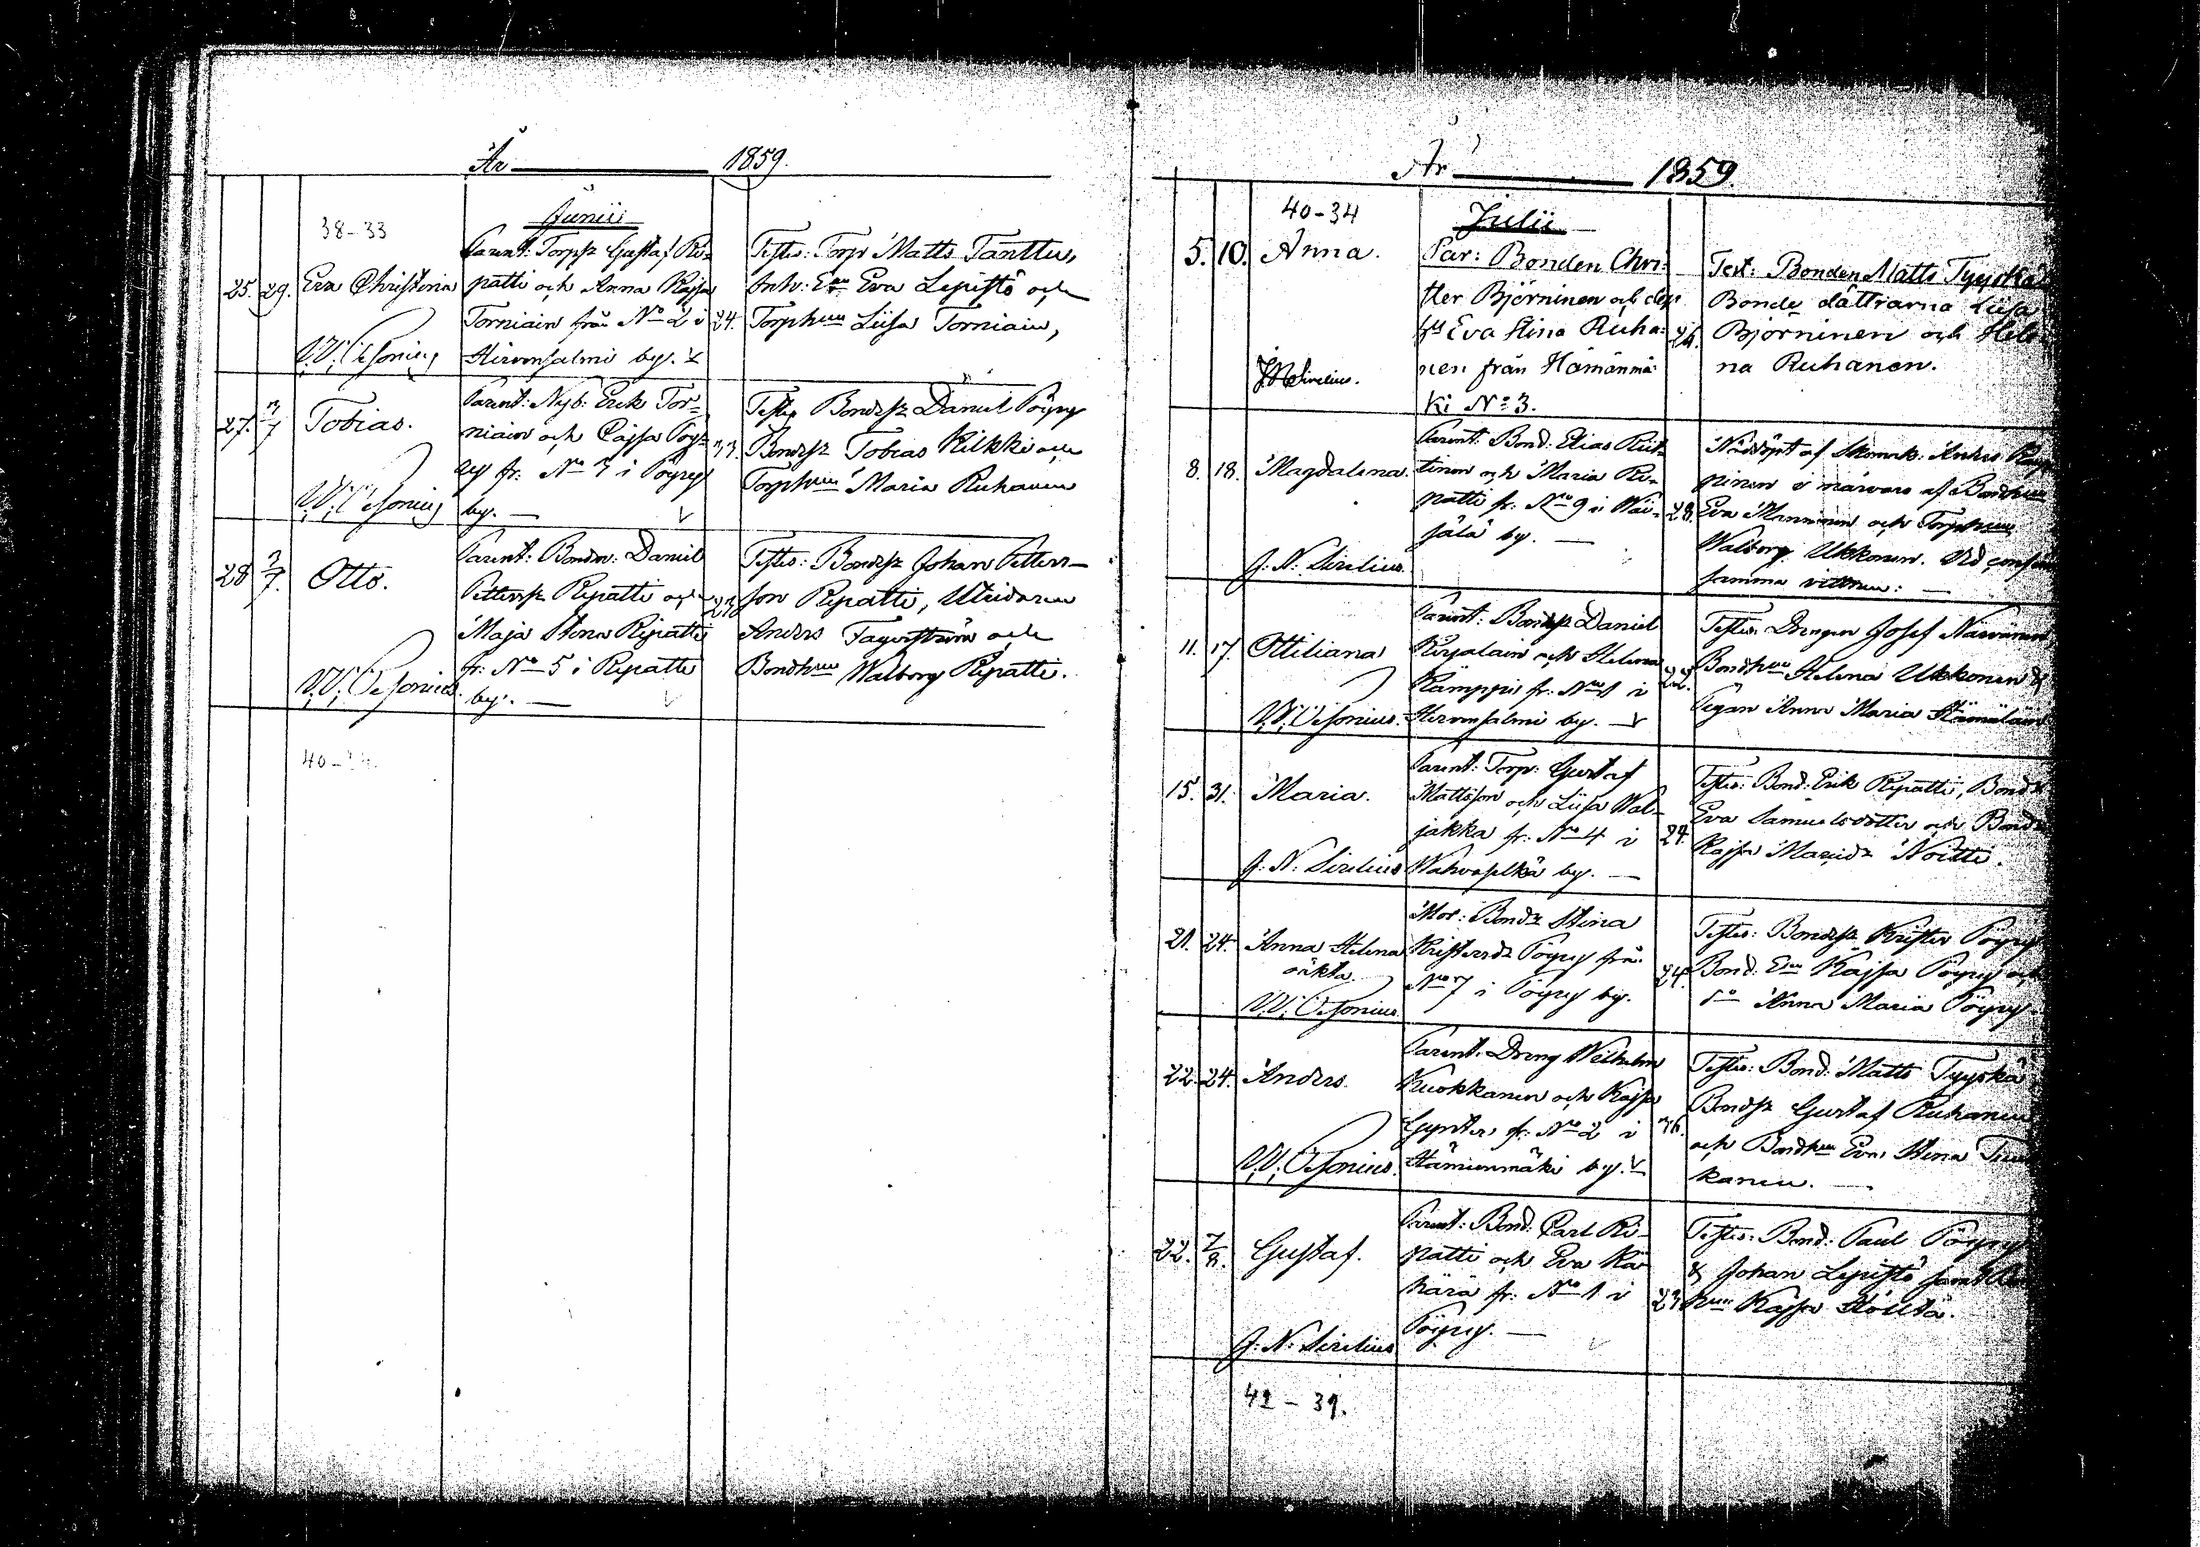 År 1859.
Junii
38-33
25. 29. Eva Christina
W. W. Cesonius
Parent: Torpsz Gustaf Ri-
patti och Anna Kajsa
Torniain från No 2 i
Hirvensalmi by.
24.
Testes: Torp Matts Tanttu,
Enk: Eva Lepistö och
Torphuun Liisa Torniain,
27. 3/7 Tobias.
W. W. Cesonius
Parent: Nyb: Erik Tor-
niain och Cajsa Pöy-
ry fr: No 7 i Pöyry
by.
33.
Testes Bondsz Daniel Pöyry
Bondsz Tobias Kilkki och
Torphuun Maria Ruhanen
28 3/7. Otto.
W. W. Cesonius.
Parent: Bonden: Daniel
Pettersz Ripatti och
Maja Stina Ripatti
fr: No 5 i Ripatti
by.
Testes: Bondsz Johan Petters-
son Ripatti, Utridaren
Anders Fagerström och
Bondhuun Walborg Ripatti.
År 1859.
40-34
Julii
5. 10. Anna.
J. N. Sirelius.
Par: Bonden Chri-
ster Björninen och dess
Eva Stina Ruha-
nen från Hämänmä-
ki No 3.
Test: Bonden Matts Tyyskä
Bonde döttrarna Liisa
Björninen och Hele
na Ruhanen.
8. 18. Magdalena.
J. N. Sirelius.
Parent: Bond: Elias Rut-
tinen och Maria Ri-
patti fr: No 9 i Wäi-
sälä by.
28.
Nöddöpt af Skomak: Anders
pinen i närvaro af Bondhuun
Eva Manninen och Torphuun
Walborg Ukkonen. Vid
samma vittnen:
11. 17. Ottiliana
W. W. Cesonius.
Parent: Bondsz Daniel
Korjalain och Helena
Kämppi fr: No 1 i
Hirvensalmi by.
22.
Testes: Drengen Josef Närvänen
Bondhuun Helena Ukkonen &
Pigan Anna Maria Hämäläin
15. 31. Maria.
J. N. Sirelius
Parent: Torp: Gustaf
Mattsson och Liisa Wal-
jakka fr: No 4 i
Wahvaselkä by.
24.
Testes: Bond: Erik Ripatti, Bond
Eva Samuelsdotter och Bond
Kajsa Noitti.
21. 24. Anna Helena
oäkta
W. W. Cesonius.
Mod: Bondz Stina
Kristersdz Pöyry från
No 7 i Pöyry by.
24.
Testes: Bondsz Krister Pöyry
Bond: Kajsa Pöyry och
do Anna Maria Pöyry.
22. 24. Anders.
W. W. Cesonius.
Parent: Dreng Wilhelm
Kuokkanen och Kajsa
Gynter fr: No 2 i
Hämienmäki by.
36.
Testes: Bond: Matts Tyyskä
Bondsz Gustaf Ruhanen
och Bondhuun Eva Stina
kanen.
22. 7/8. Gustaf.
J. N. Sirelius
Parent: Bond: Carl Ri-
patti och Eva Kä-
härä fr: No 1 i
Pöyry.
23
Testes: Bond: Paul Pöyry
& Johan Lepistö samt
huun Kajsa Höltä.
42 - 39.